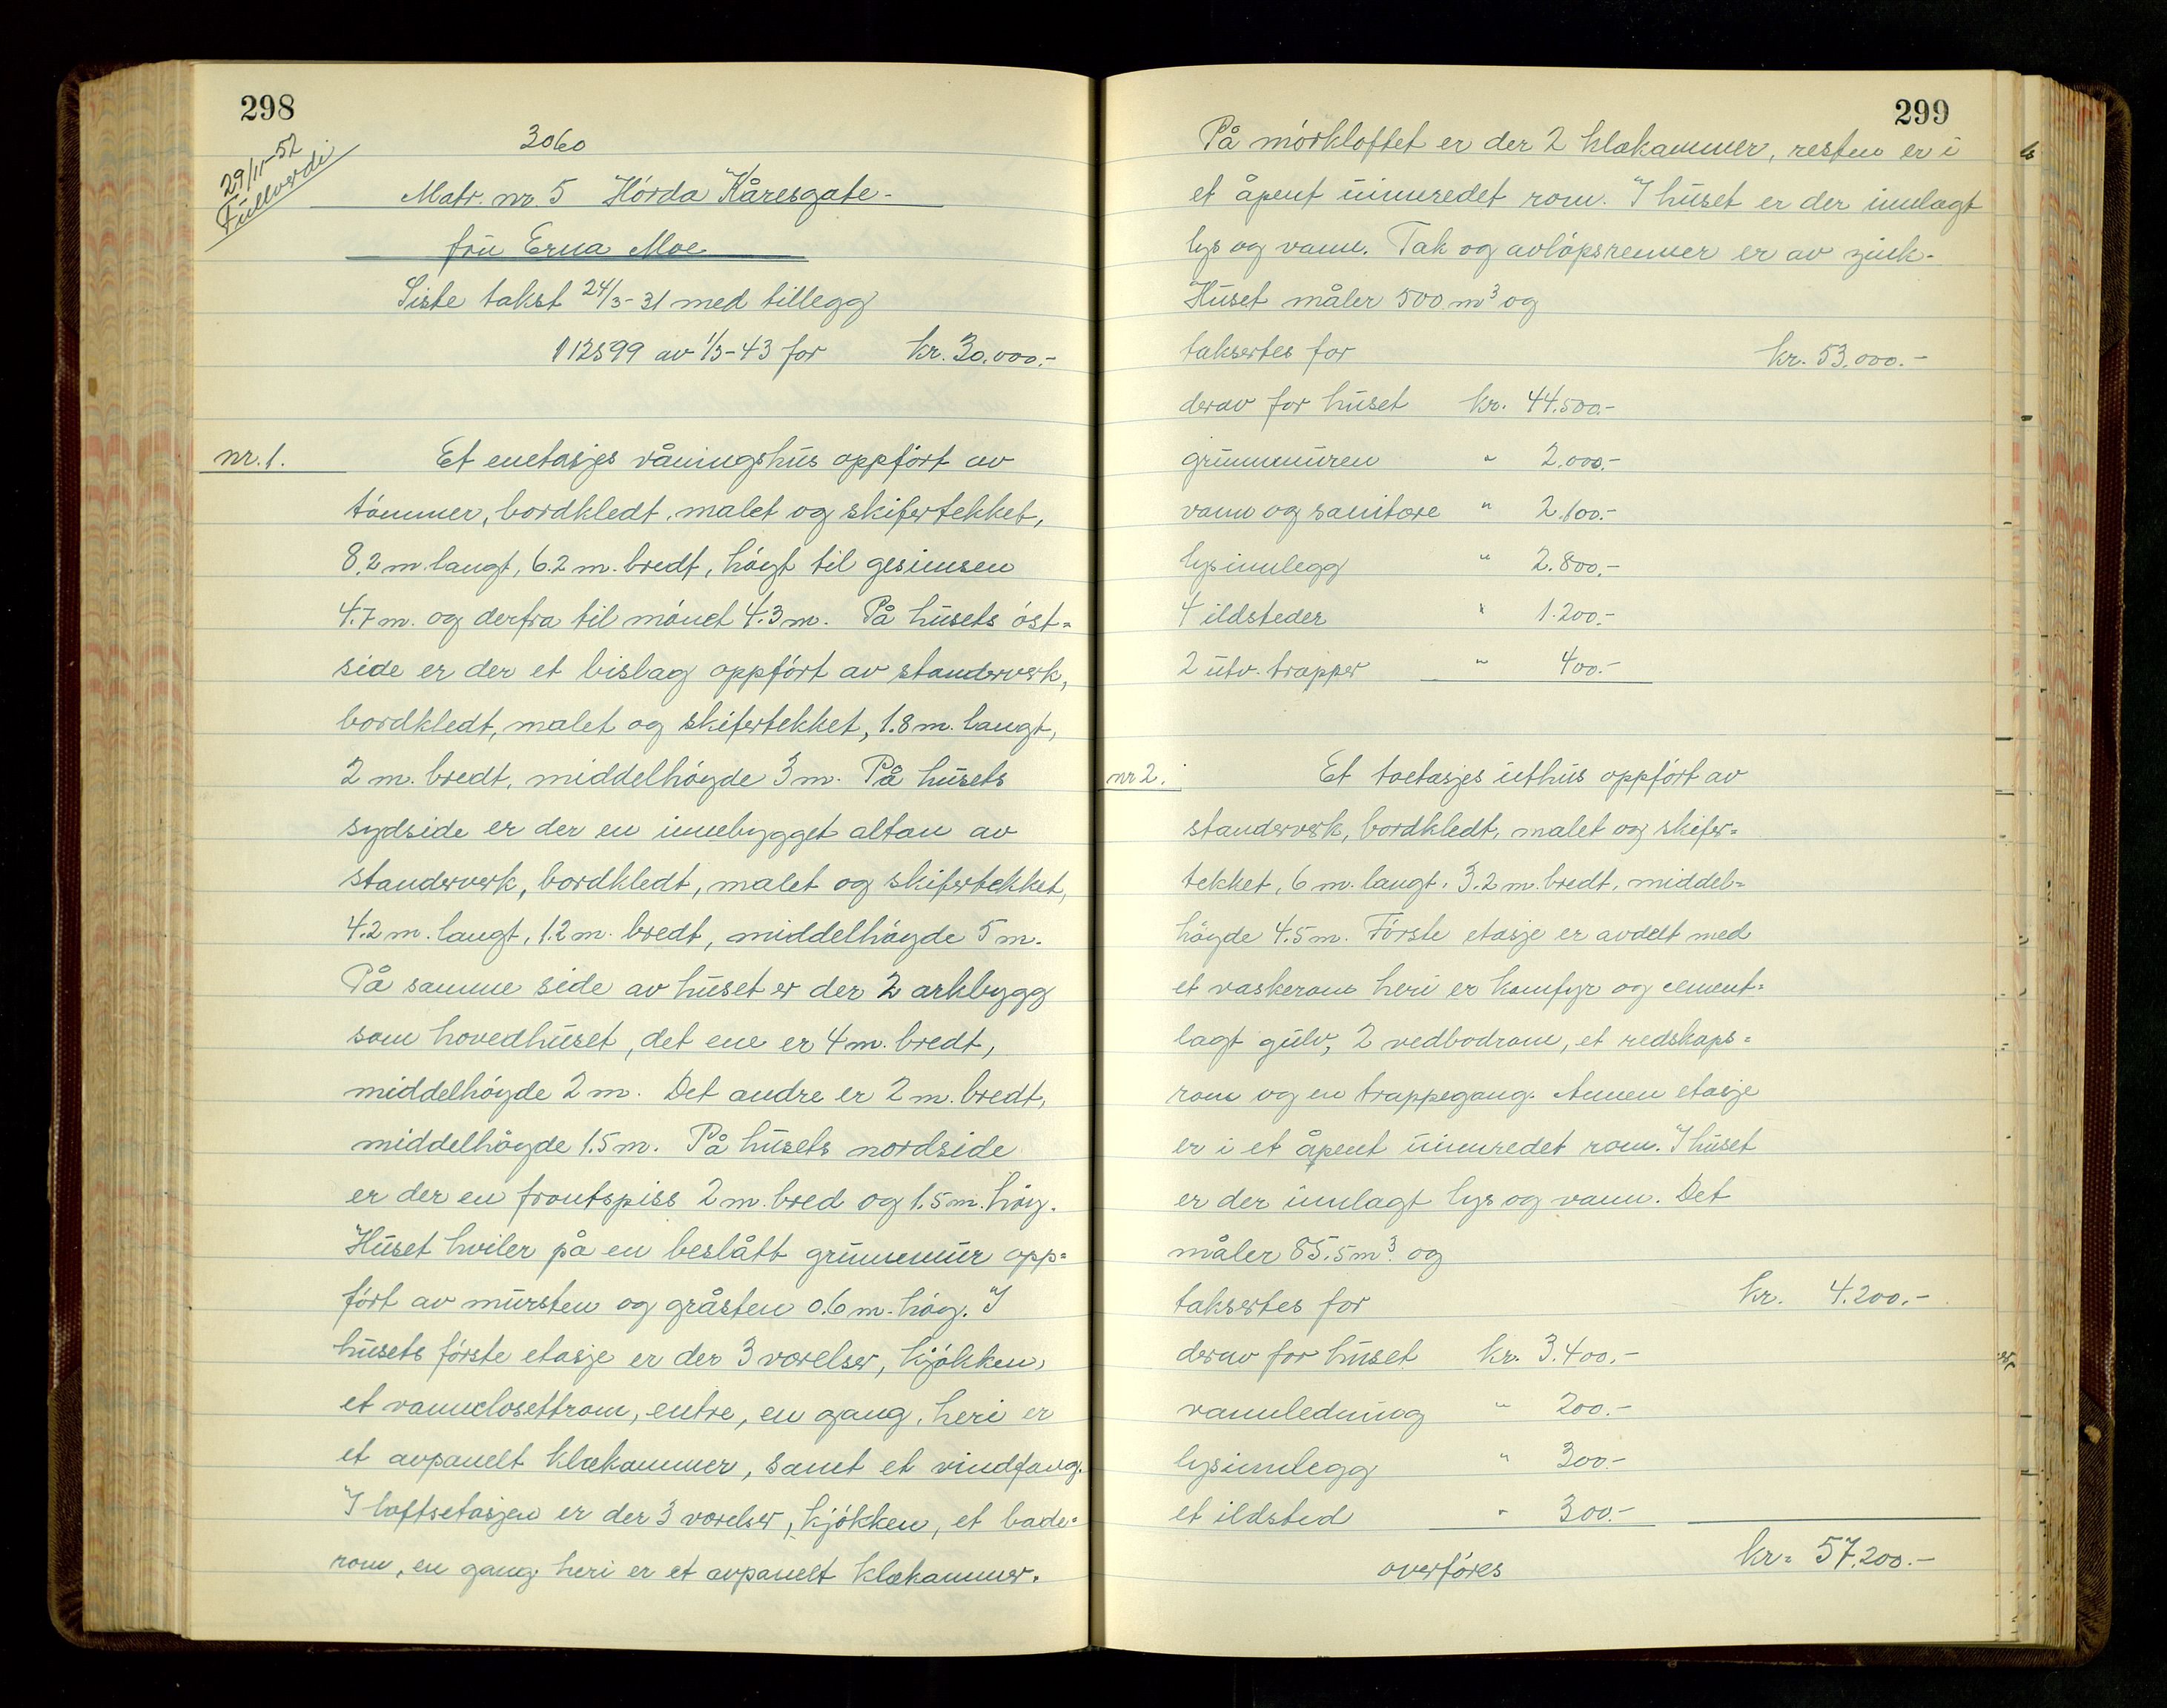 298
29/11-52
Fullverdi
3060
Matr. nr 5 Hórda Kåresgate-
frū Erna Moe
Siste takst 24/3-31 med tillegg
112599 av 1/3-43 for kr. 30.000.-
nr. 1. Et enetasjes våningshūs oppfórt av
tómmer, bordkledt, malet og skifertekket,
8.2 m. langt, 6.2 m. bredt, hóyt til gesimsen
4.7 m. og derfra til mónet 4.3 m. På hūsets óst=
side er der et bislag oppfórt av standerverk,
bordkledt, malet og skifertekket, 1.8 m. langt,
2 m. bredt, middelhóyde 3 m. På hūsets
sydside er der en innebygget altan av
standerverk, bordkledt, malet og skifertekket,
4.2 m. langt, 1.2 m. bredt, middelhóyde 5 m.
På samme side av hūset er der 2 arkbygg
som hovedhūset, det ene er 4 m. bredt,
middelhóyde 2 m. Det andre er 2 m. bredt,
middelhóyde 1.5 m. På hūsets nordside
er der en frontspiss 2 m. bred og 1.5 m. hóy.
Hūset hviler på en beslått grūnnmūr opp=
fórt av mūrsten og gråsten 0.6 m. hóy. I
hūsets fórste etasje er der 3 værelser, kjókken,
et vannclosettrom, entre, en gang, heri er
et avpanelt klækammer, samt et vindfang.
I loftsetasjen er der 3 værelser, kjókken, et bade=
rom, en gang heri er et avpanelt klækammer.
299
På mórkloftet er der 2 klækammer, resten er i
et åpent ūinnredet rom. I hūset er der innlagt
lys og vann. Tak og avlópsrenner er av zink.
Hūset måler 500 m³ og
takseres for kr. 53.000.-
derav for hūset kr. 44.500.-
grūnnmūren " 2.000.-
vann og sanitære " 2.100.-
lysinnlegg " 2.800.-
4 ildsteder " 1.200.-
2 ūtv. trapper " 400.-
nr 2. Et toetasjes ūthūs oppfórt av
standerverk, bordkledt, malet og skifer=
tekket, 6 m. langt, 3.2 m. bredt, middel=
hóyde 4.5 m. Fórste etasje er avdelt med
et vaskerom heri er komfyr og cement=
lagt gūlv, 2 vedbodrom, et redskaps=
rom og en trappegang. Annen etasje
er i et åpent ūinnredet rom. I hūset
er der innlagt lys og vann. Det
måler 85.5 m³ og
takseres for kr. 4.200.-
derav for hūset kr. 3.400.-
vannledning " 200.-
lysinnlegg " 300.-
et ildsted " 300.-
overfóres kr. 57.200.-